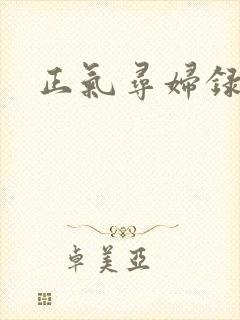 正氣尋婦録
卓美亞